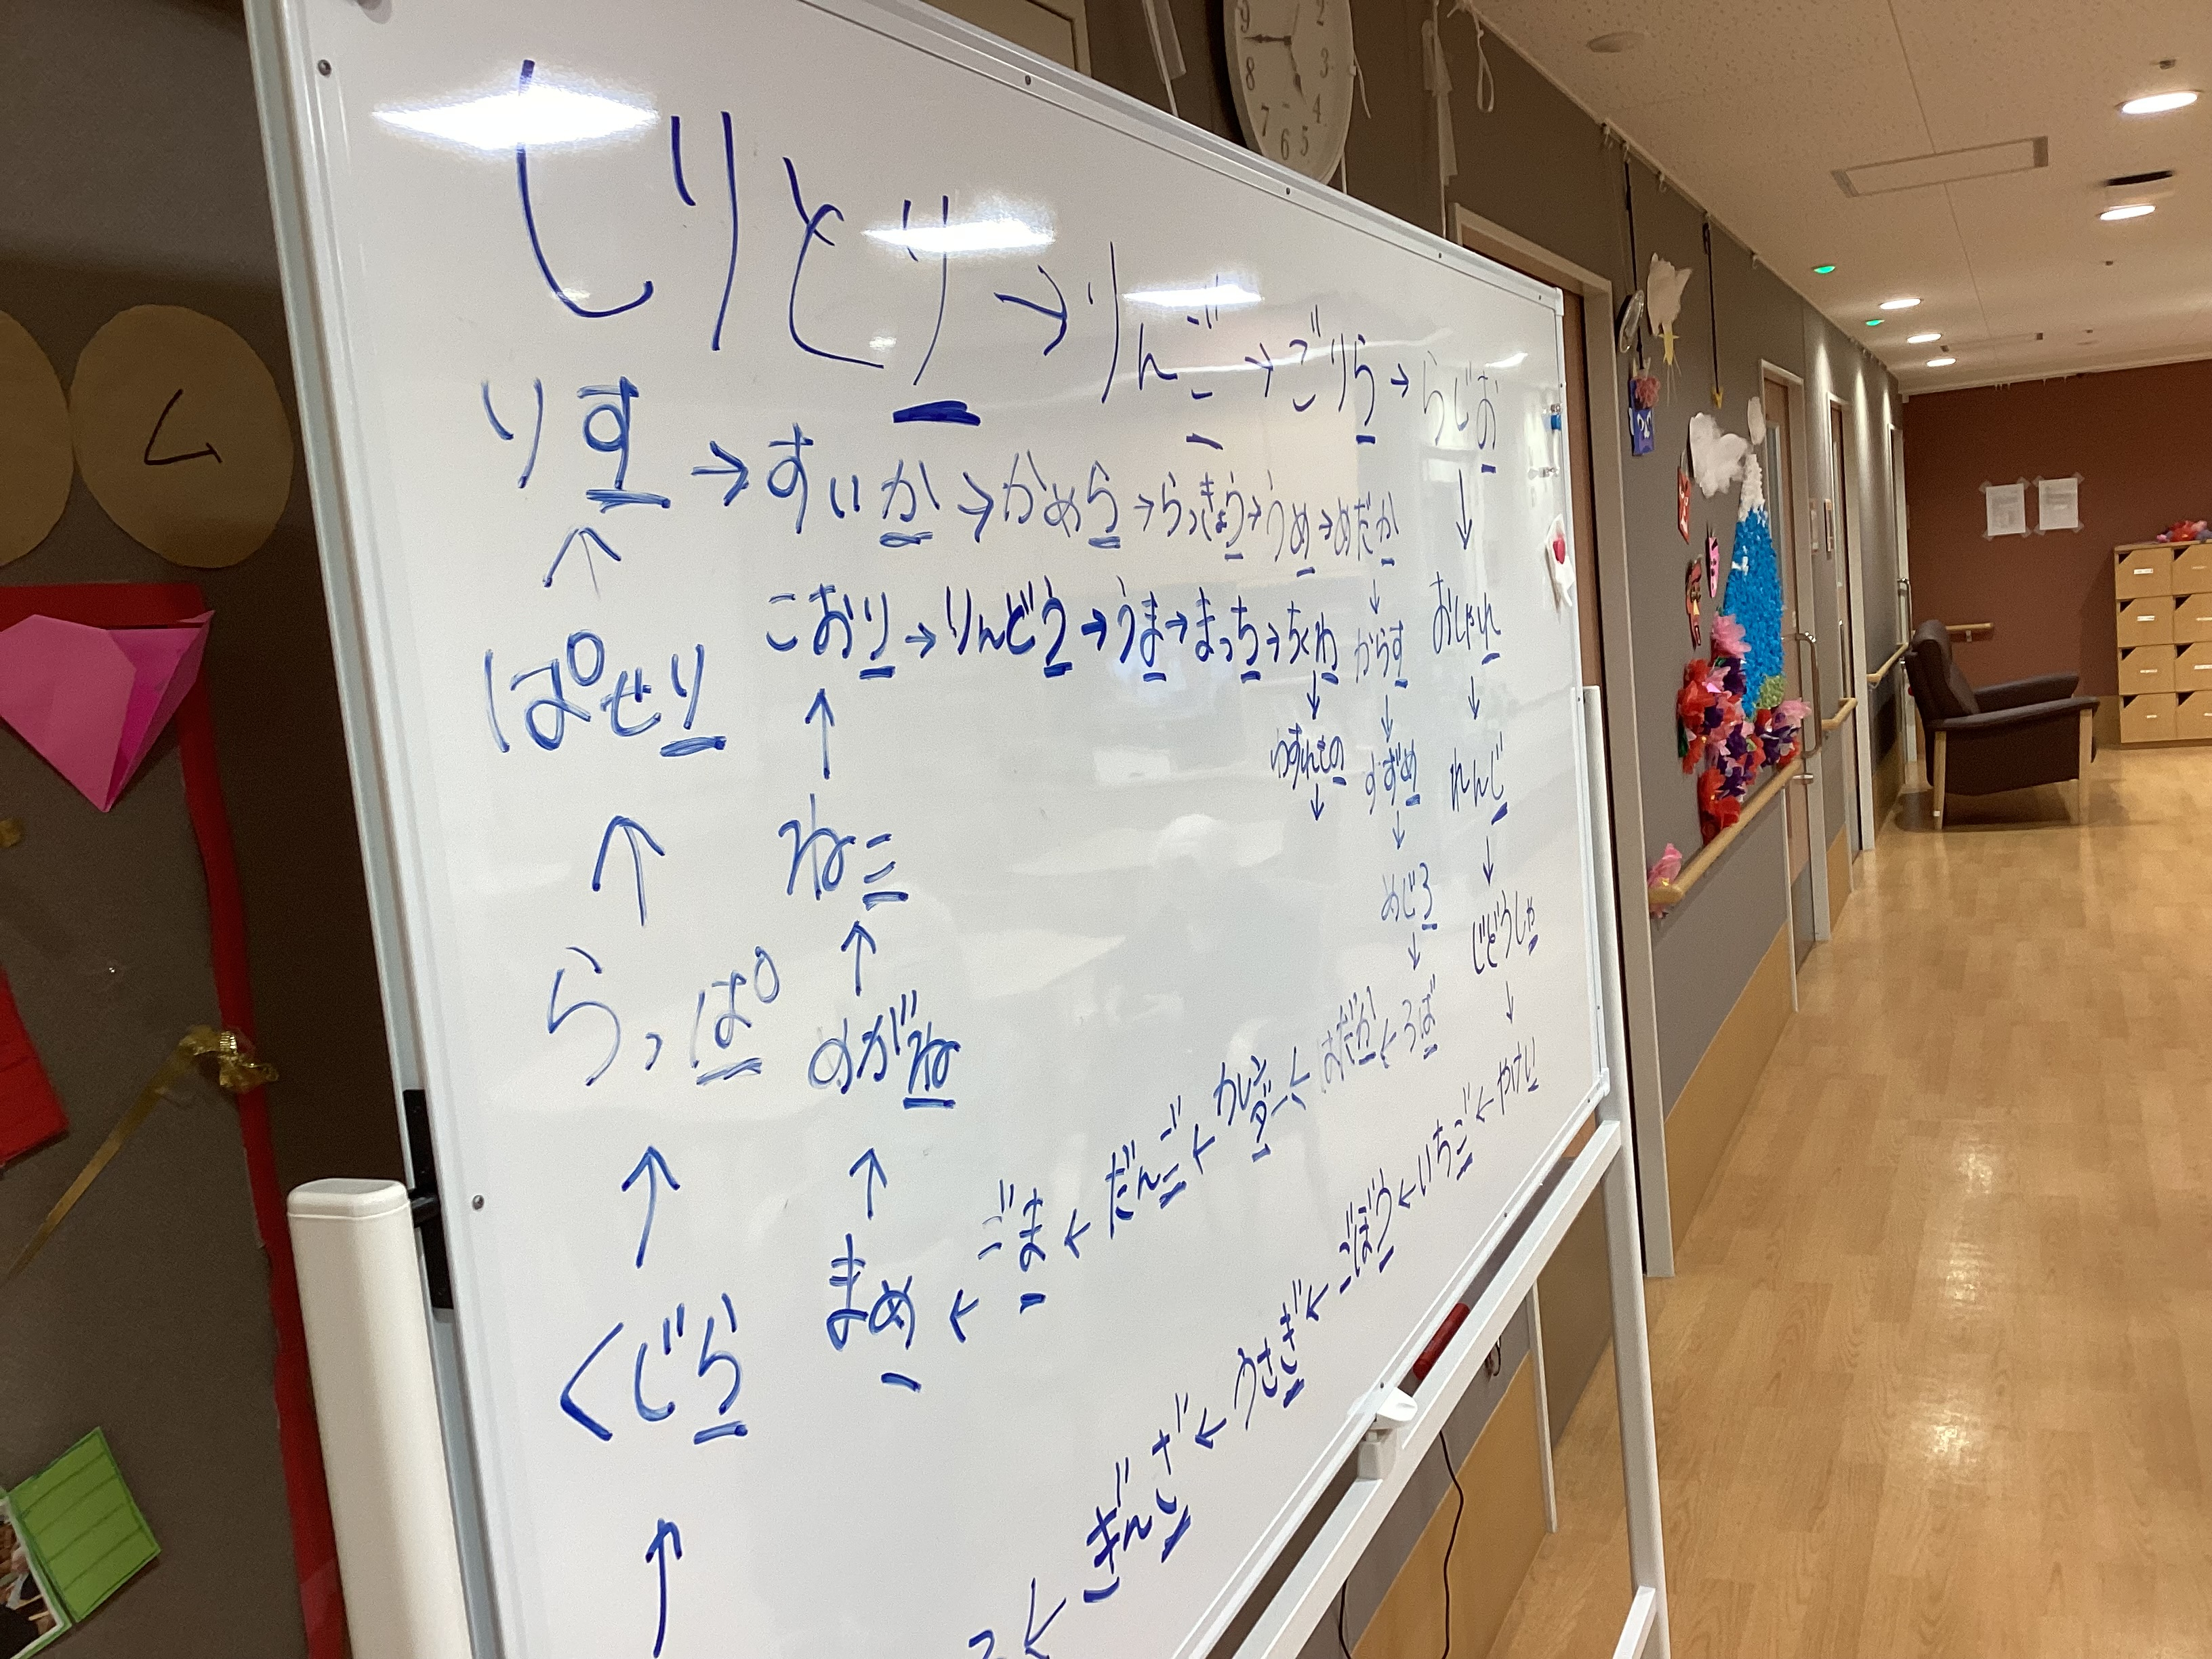 しりとり→りんご→ごりら→らじお
りす→すいか→かめら→らっきょう→うめ→めだか
↑ ↓ ↓
こおり→りんどう→うま→まっち→ちくわ からす おしゃれ
ぱせり ↑ ↓ ↓ ↓
わすれもの すずめ れんじ
↑ ねこ ↓ ↓ ↓
めじろ じどうしゃ
らっぱ ↑ ↓ ↓
めがね
↑ ↑
まめ←ごま←だんご← ←はだか←ろば
くじら
↑ ← ぎんなん←うさぎ←ごぼう←いちご←やけい
ム
9 8 7 6 5 4 3 2